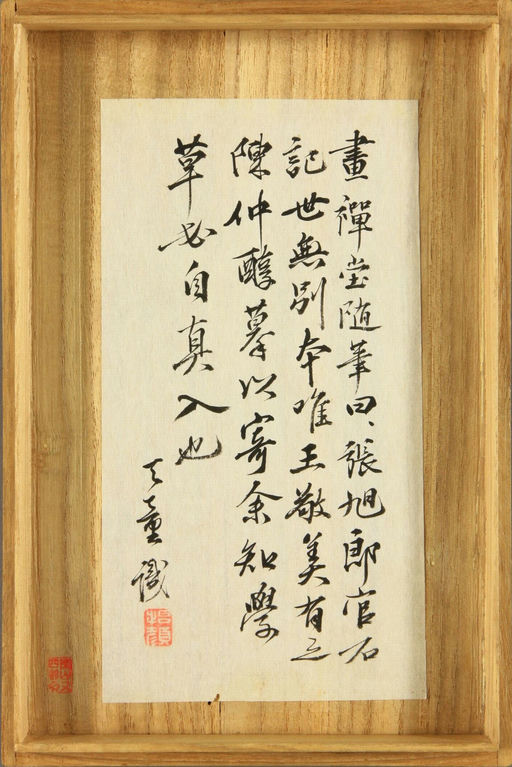 畫禪室随筆曰、張旭郎官石
記世無別本唯王敬美有之
陳仲醇摹以寄余知學
草必自真入也
天童識